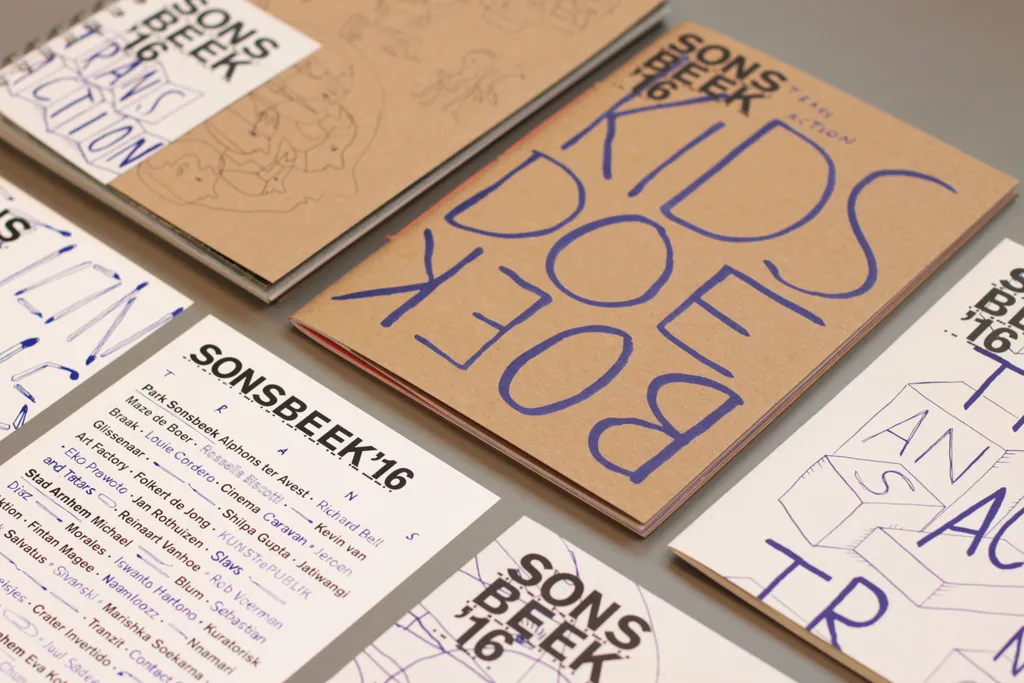 SONS
BEEK
'16
TRANS
ACTION
SONS
BEEK
'16
TRANS
ACTION
KIDS
DOE
BOEK
SONSBEEK'16
T R A N S
Park Sonsbeek Alphons ter Avest · Richard Bell
Maze de Boer · Rossella Biscotti · Kevin van
Braak · Louie Cordero · Cinema Caravan · Jeroen
Glissenaar · Shilpa Gupta · Jatiwangi
Art Factory · Folkert de Jong · KUNSTrePUBLIK
· Eko Prawoto · Jan Rothuizen · Slavs
and Tatars · Reinaart Vanhoe · Rob Voerman
Stad Arnhem Michael Blum · Sebastian
Diaz Morales · Iswanto Hartono · Kuratorisk
Fintan Magee · Naamloozz · Nnamari
Salvatus · Sivanski · Marishka Soekarna ·
Crater Invertido · Tranzit · Contact
SONS
BEEK
'16
'16
TRANS
AC
TR